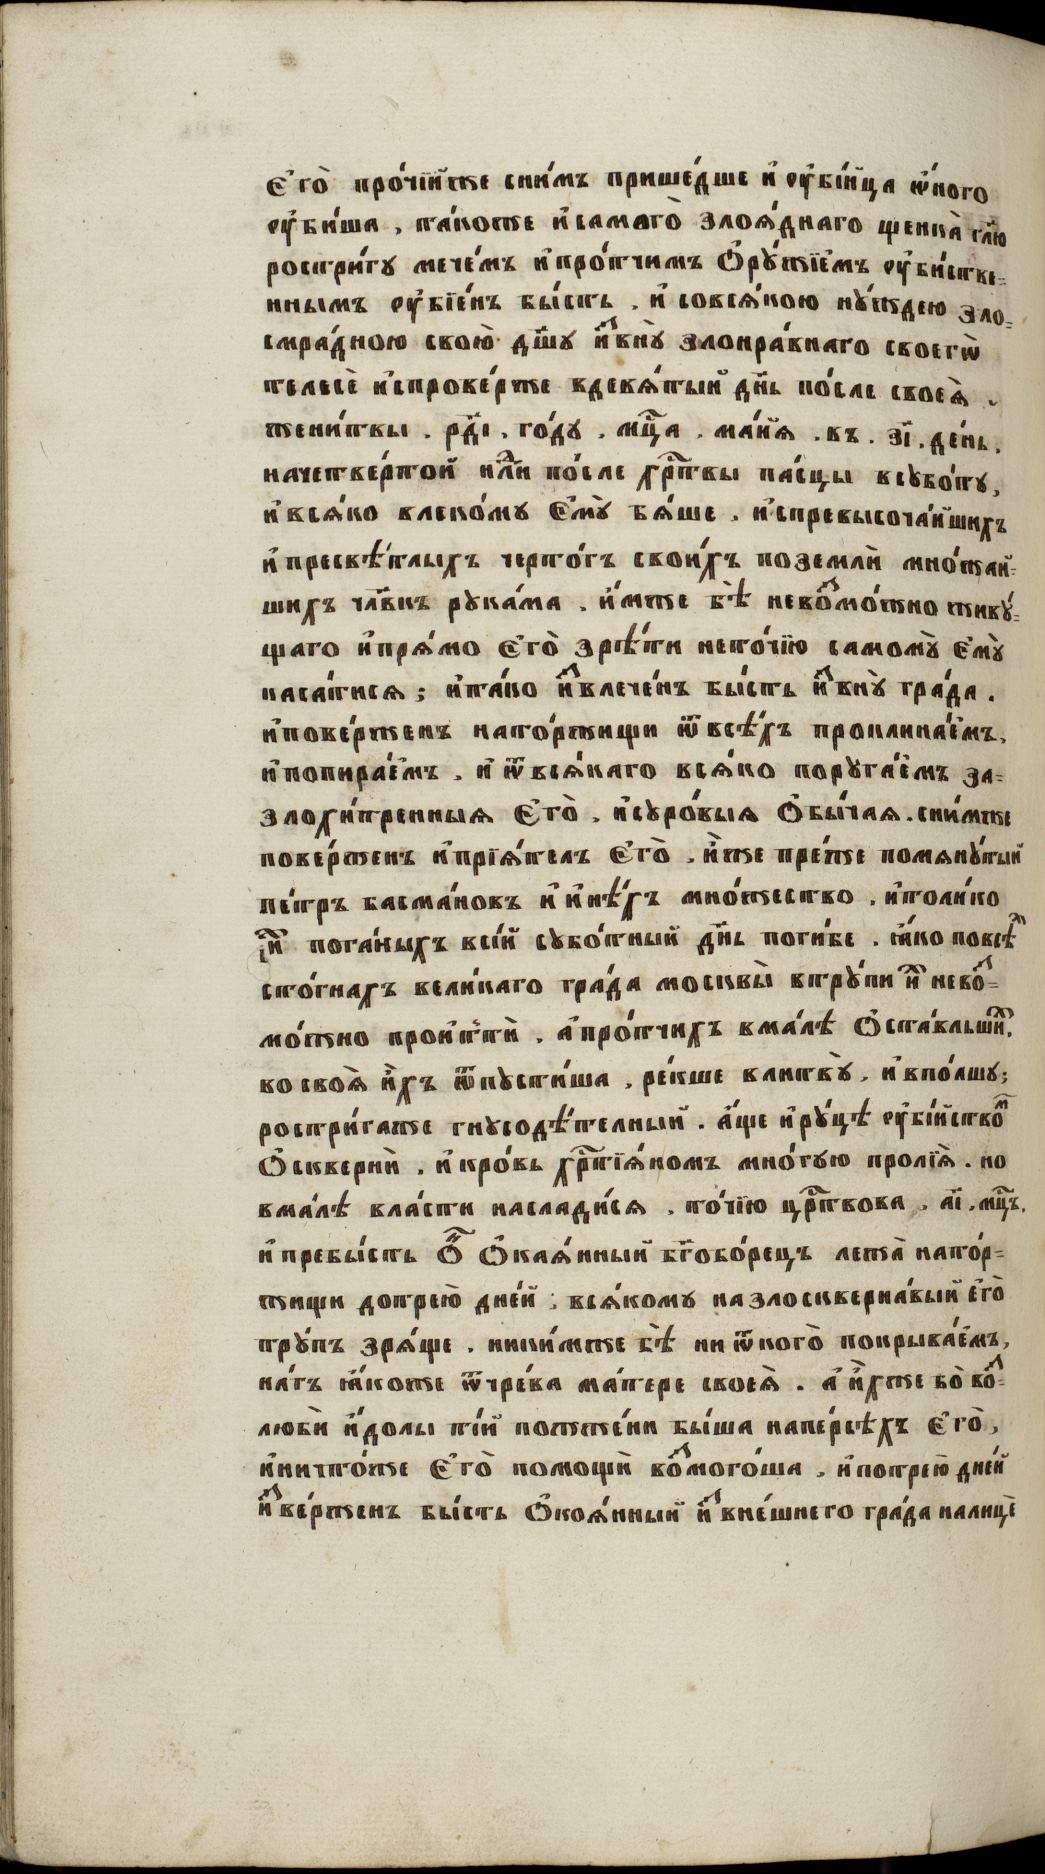 Єго̀ про́чїйже сни́мъ прише́дше и҆ ᲂу҆бі́йца ѡ҆́ного
ᲂу҆би́ша , та́коже и҆самаго̀ злоѧ́днаго щенка̀ гл҃ю
ростри́гу мече́мъ и҆про́тчимъ Ѻ҆рꙋ́жїемъ ᲂу҆би́ств-
ннымъ ᲂу҆бїе́нъ бы́сть . и҆ совсѧ́кою нꙋ́ждею зло-
смра́дною свою̀ дш҃у и҆ⷥвнꙋ̀ злонра́внаго своегѡ̀
телесѐ и҆спрове́рже вдевѧ́тый дн҃ь по́сле своеѧ̀ .
жени́твы . рд҃і . го́ду . мц҃а . ма́йѧ . въ . зі҃ . де́нь .
начетве́ртой нл҃и по́сле хрⷭ҇твы па́сцы всꙋбо́ту,
и҆всѧ́ко влеко́му Є҆мꙋ̀ бѧ́ше . и҆спревысоча́йшихъ
и҆ пресвѣ́тлыхъ черто́гъ свои́хъ поземлѝ мно́жай-
шихъ чл҃вкъ рука́ма . и҆́мже бѣ̀ невоⷥмо́жно живꙋ́-
щаго и҆прѧ́мо Є҆го̀ зрѣ́ти нето́чїю самомꙋ̀ Є҆мꙋ̀
каса́тисѧ ; и҆та́ко и҆ⷥвлече́нъ бы́сть и҆ⷥвнꙋ̀ гра́да .
и҆пове́рженъ нато́ржищи ѿ всѣ́хъ проклина́емъ,
и҆попира́емъ . и҆ ѿ всѧ́каго всѧ́ко поруга́емъ за-
злохи́тренныѧ Є҆го̀ . и҆суро́выѧ Ѻ҆бы́чаѧ . сни́мже
пове́рженъ и҆прїѧ́тель Є҆го̀ . и҆́же пре́же помѧнꙋ́тый
пе́тръ басма́новъ и҆ и҆нѣ́хъ мно́жество . и҆толи́ко
и҆ⷯ пога́ныхъ всі́й субо́тный дн҃ь поги́бе . ꙗ҆́ко повсѣⷯ
сто́гнахъ вели́каго гра́да москвы̀ втрꙋ́пи и҆ⷯ невоⷥ-
мо́жно прои҆ттѝ . а҆про́тчихъ вма́лѣ Ѻ҆ста́вльшиⷯ.
во своѧ̀ и҆̀хъ ѿпусти́ша , ре́кше влитвꙋ̀ . и҆впо́лшу;
ростри́гаже гнусодѣ́телный . а҆́ще и҆рꙋ́цѣ ᲂу҆бі́йствоⷨ
Ѻ҆скверни̏ . и҆кро́вь хрⷭ҇тїѧ́номъ мно́гую пролїѧ̀ . но
вма́лѣ вла́сти наслади́сѧ . то́чїю црⷭ҇твова . аі҃ . мц҃ъ.
и҆ пребы́сть Ѻ҆́ⷩ Ѻ҆каѧ́нный бг҃обо́рецъ лежа̀ нато́р-
жищи дотрею̀ дне́й ; всѧ́кому на злосквернавый є҆го̀
трꙋ́пъ зрѧ́ще . ники́мже бѣ̀ ни ѿкого̀ покрыва́емъ,
на́гъ ꙗ҆́коже ѿчре́ва ма́тере своеѧ̀ . а҆ и҆́хже во̀ воⷥ-
любѝ и҆́долы ті́й пожже́ни бы́ша напе́рсѣхъ Є҆го̀ ,
и҆ничто́же Є҆го̀ помощѝ воⷥмого́ша . и҆потрею̀ дне́й
и҆ⷥве́рженъ бы́сть Ѻ҆коѧ́нный и҆ⷥвне́шнего гра́да налицѐ